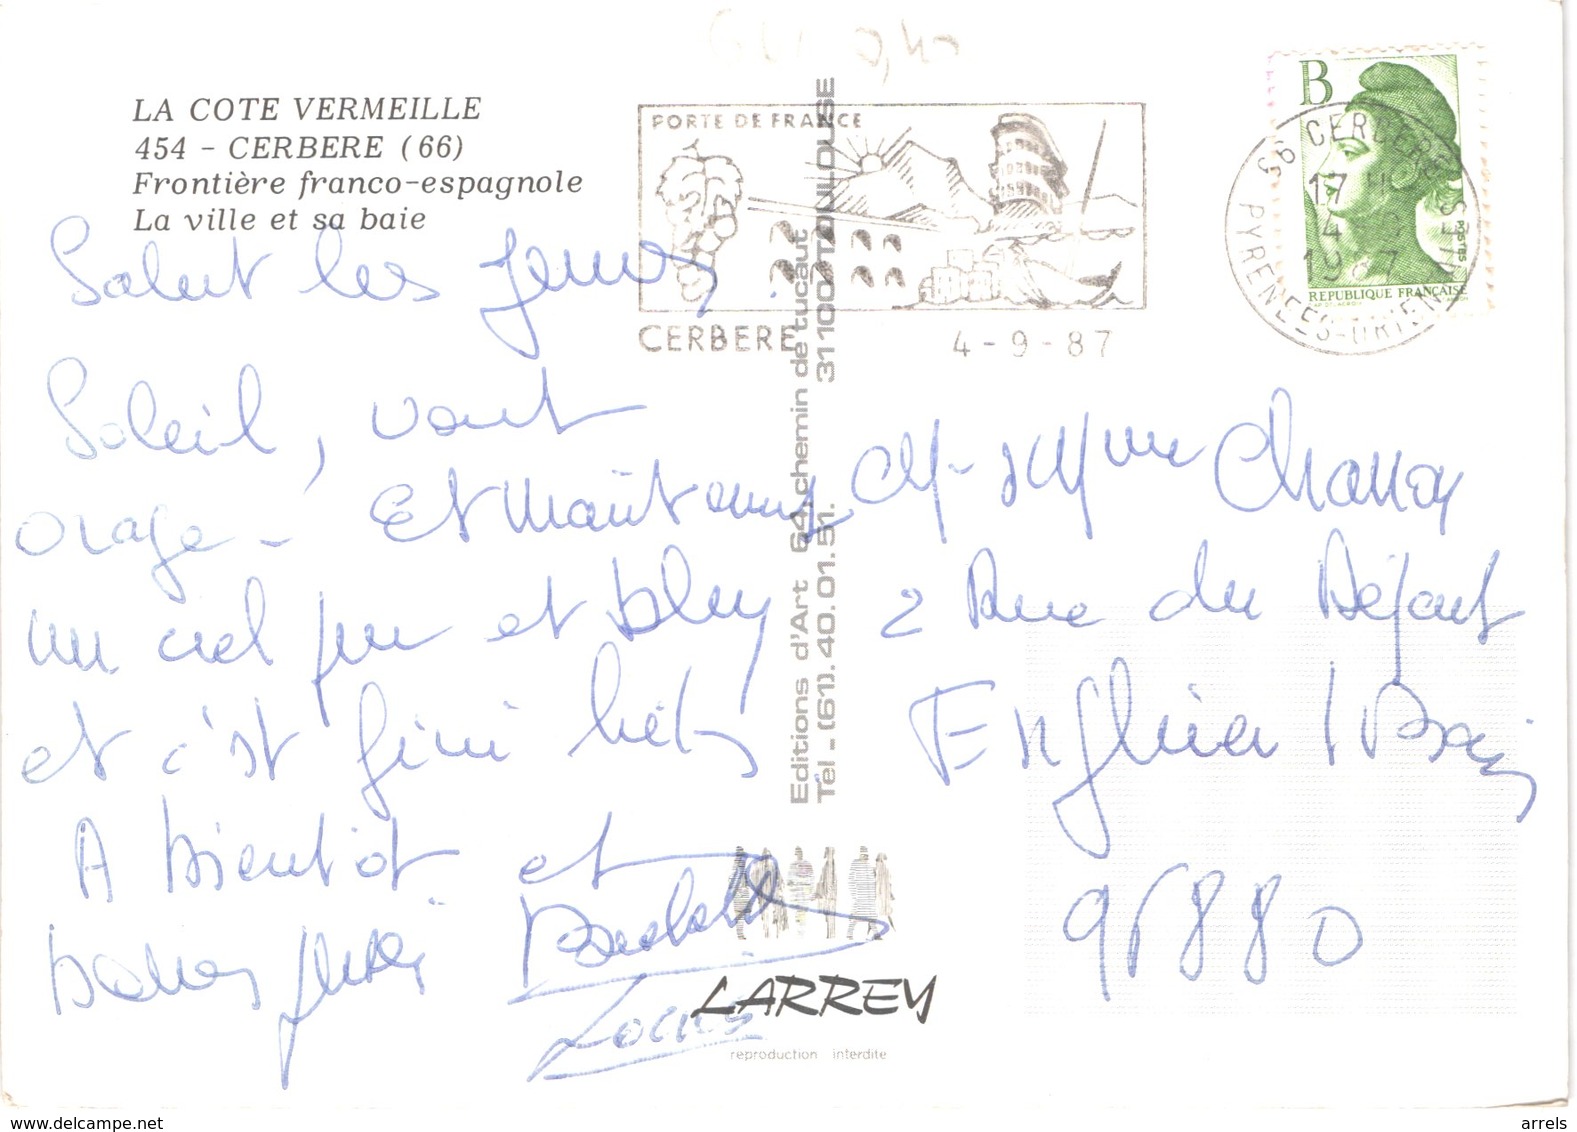 LA COTE VERMEILLE
454 - CERBERE (66)
Frontière franco-espagnole
La ville et sa baie
Salut les jeunes
Soleil, vent
orage - Et maintenant
un ciel pur et bleu
et c'est fini hélas
A bientôt et
bonnes
Louis
PORTE DE FRANCE
CERBERE
4-9-87
B
POSTES
REPUBLIQUE FRANÇAISE
66 CERBERE
17 H
4
1987
PYRENEES-ORIENTALES
Editions d'Art 64, chemin de tucaut
Tél - (61). 40.01.51. 31100 TOULOUSE
LARREY
reproduction interdite
M. et Mme
2 Rue du Départ
Enghien / Bains
95880
www.delcampe.net
arrels